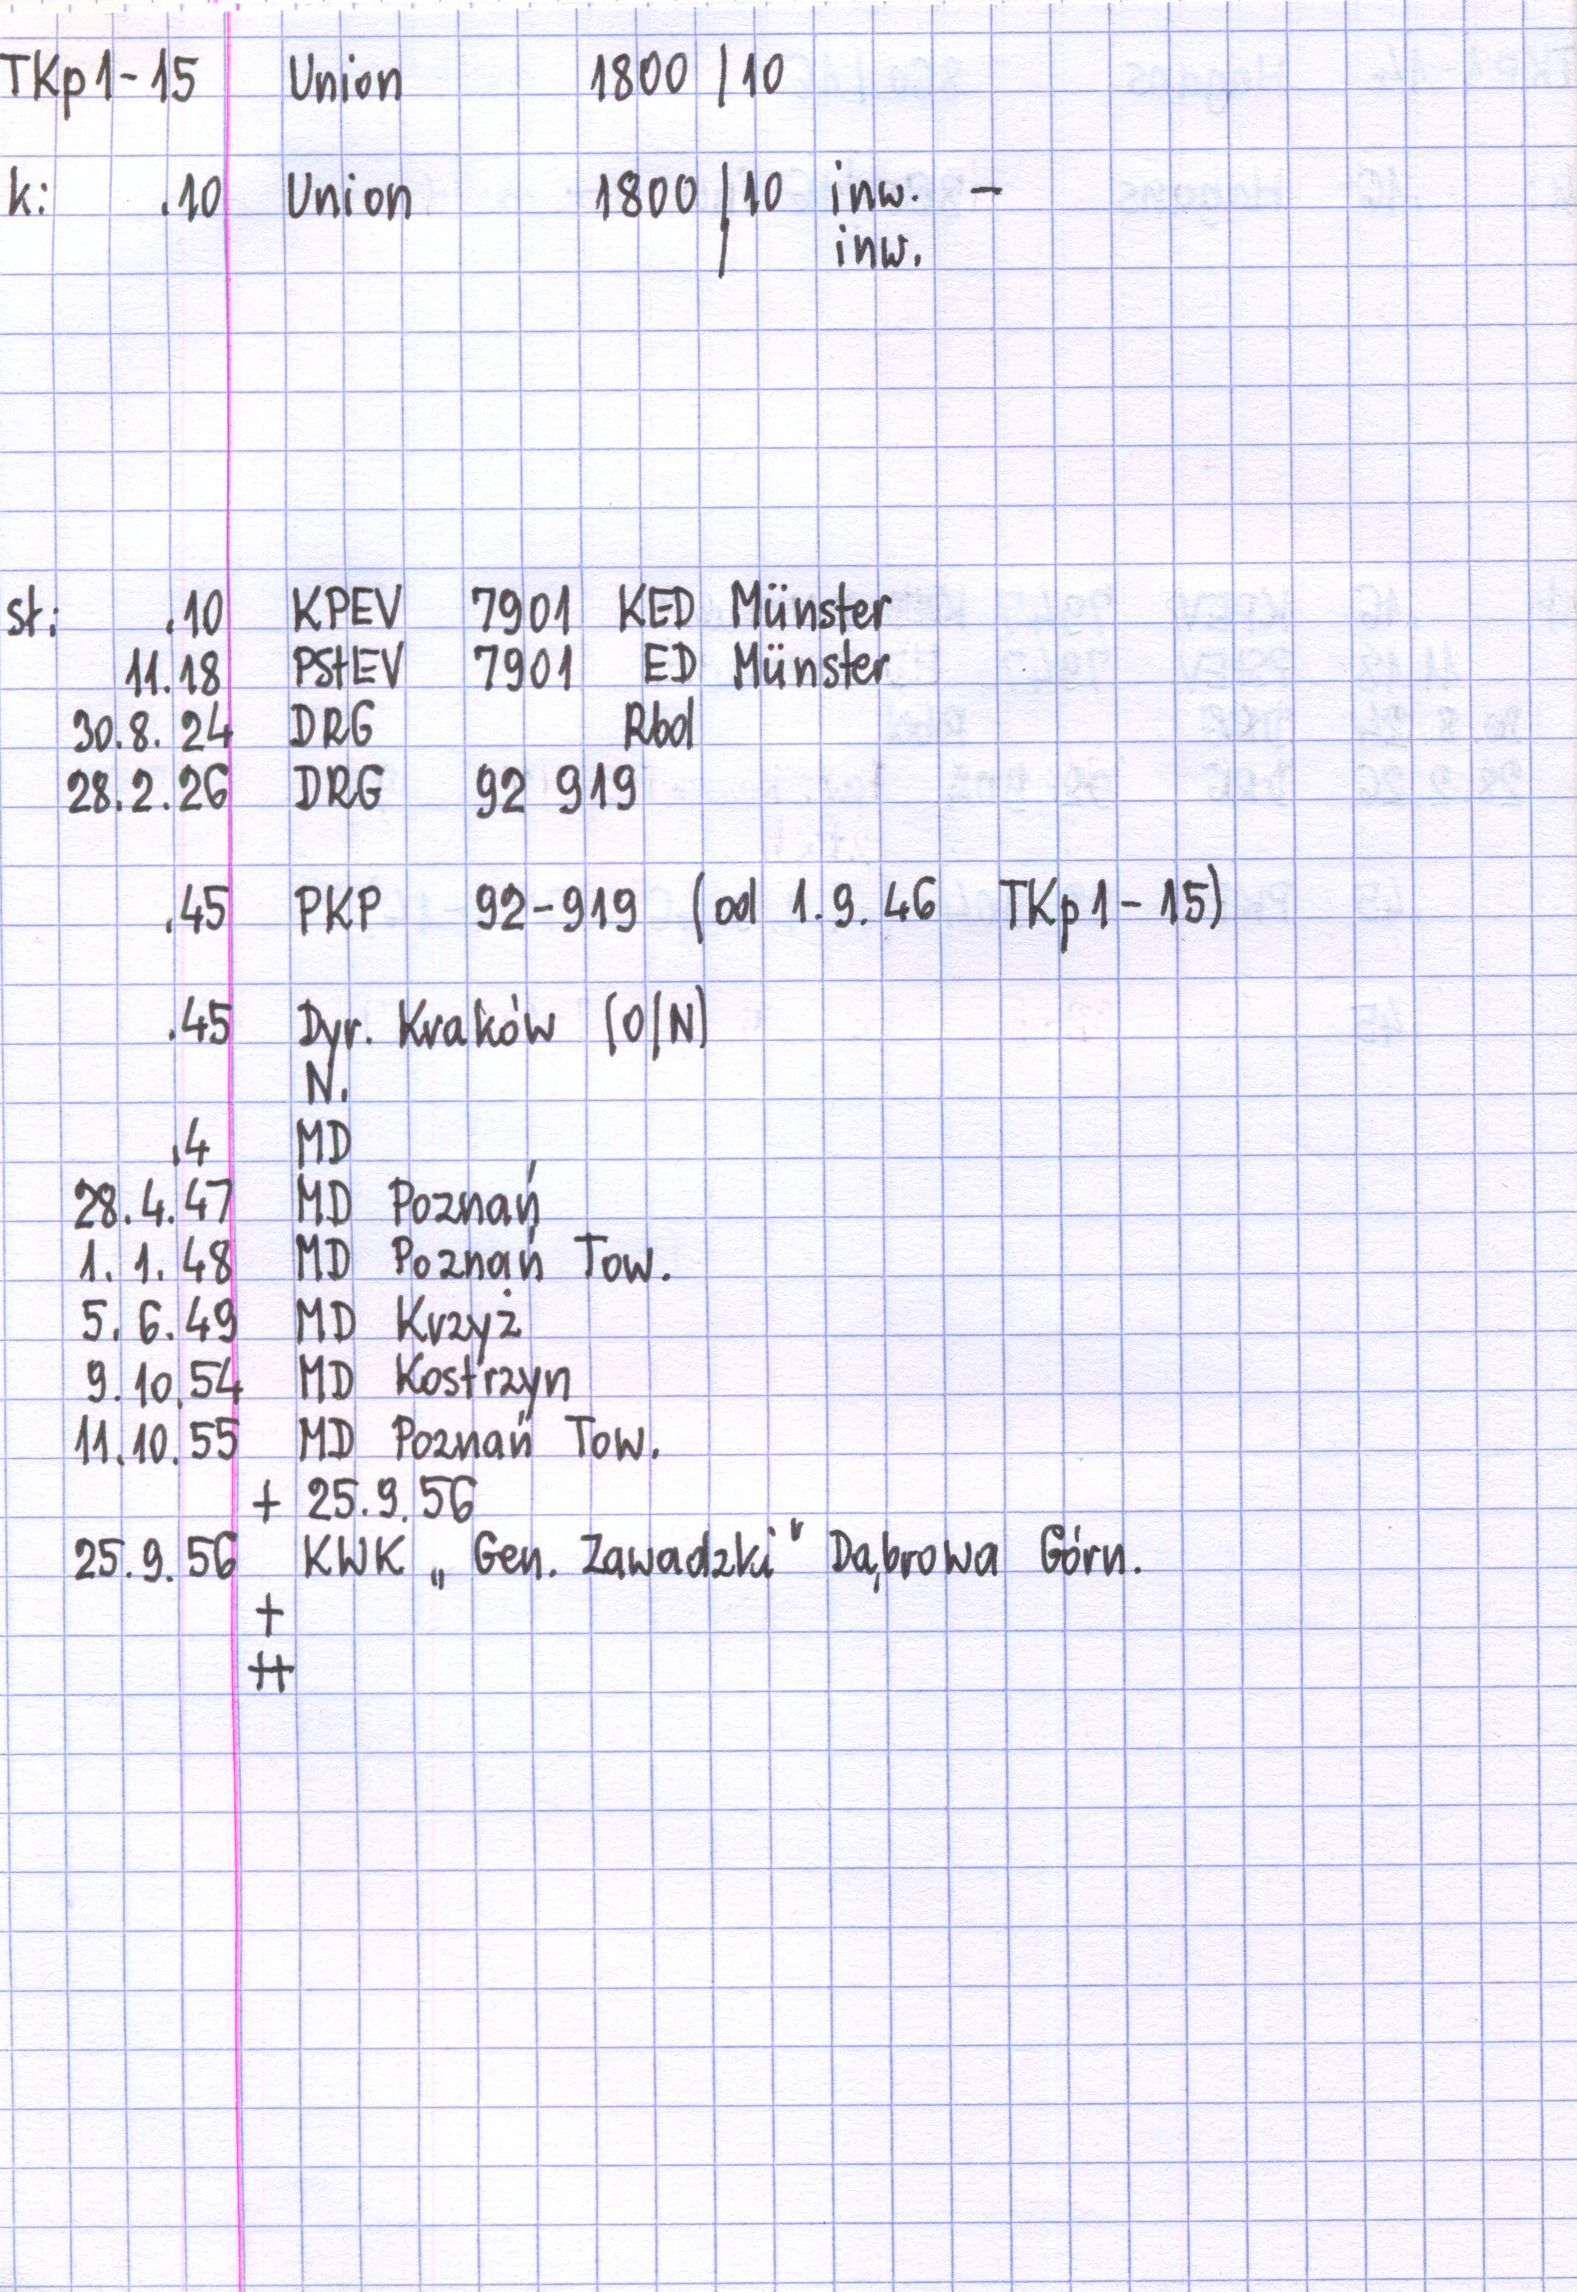 TKp1-15 Union 1800/10
k: .10 Union 1800/10 inw. -
/ inw.
st: .10 KPEV 7901 KED Münster
11.18 PStEV 7901 ED Münster
30.8.24 DRG Rbd
28.2.26 DRG 92 919
.45 PKP 92-919 (od 1.9.46 TKp1-15)
.45 Dyr. Kraków (O/N)
N.
.4 MD
28.4.47 MD Poznań
1.1.48 MD Poznań Tow.
5.6.49 MD Krzyż
9.10.54 MD Kostrzyn
11.10.55 MD Poznań Tow.
+ 25.9.56
25.9.56 KWK „Gen. Zawadzki" Dąbrowa Górn.
+
++